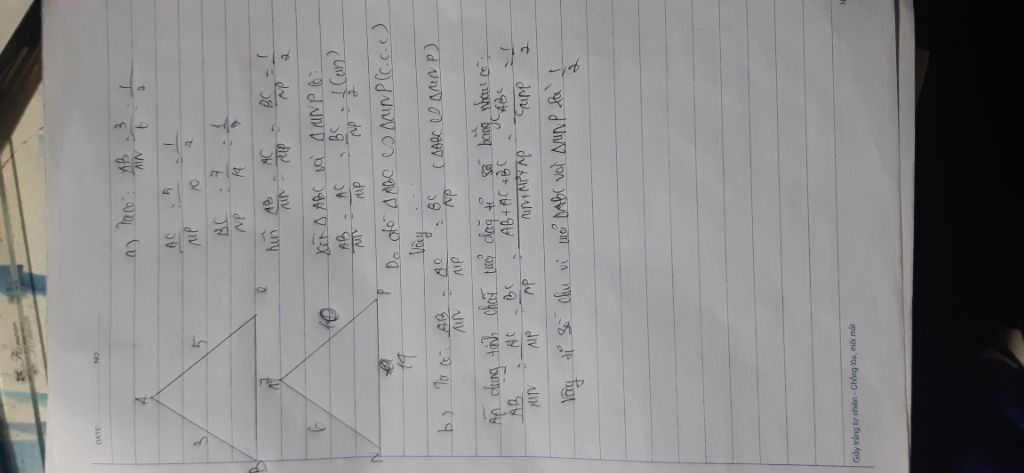 DATE: NO.
A
3 5
B C
M
6 10
N P
14
a) Ta có: AB/MN = 3/6 = 1/2
AC/MP = 5/10 = 1/2
BC/NP = 7/14 = 1/2
Nên AB/MN = AC/MP = BC/NP = 1/2
Xét Δ ABC và Δ MNP có:
AB/MN = AC/MP = BC/NP = 1/2 (cmt)
Do đó Δ ABC ∽ Δ MNP (c.c.c)
Vậy ...
b) Ta có: AB/MN = AC/MP = BC/NP (ΔABC ∽ ΔMNP)
Áp dụng tính chất của dãy tỉ số bằng nhau có:
AB/MN = AC/MP = BC/NP = AB+AC+BC/MN+MP+NP = CABC/CMNP = 1/2
Vậy tỉ số chu vi của ΔABC và ΔMNP là 1/2
Giấy trắng tự nhiên - Chống lóa, mỏi mắt